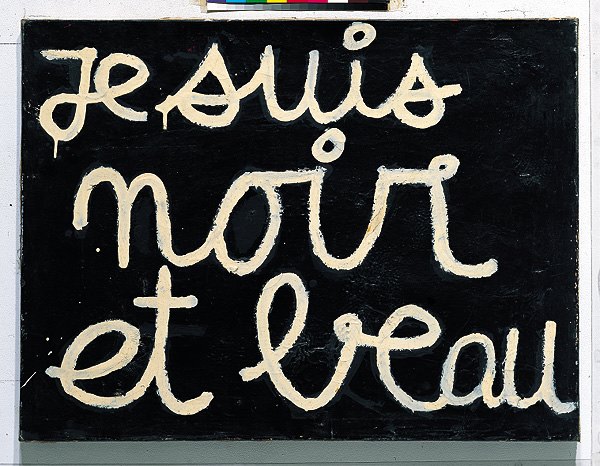 je suis
noir
et beau